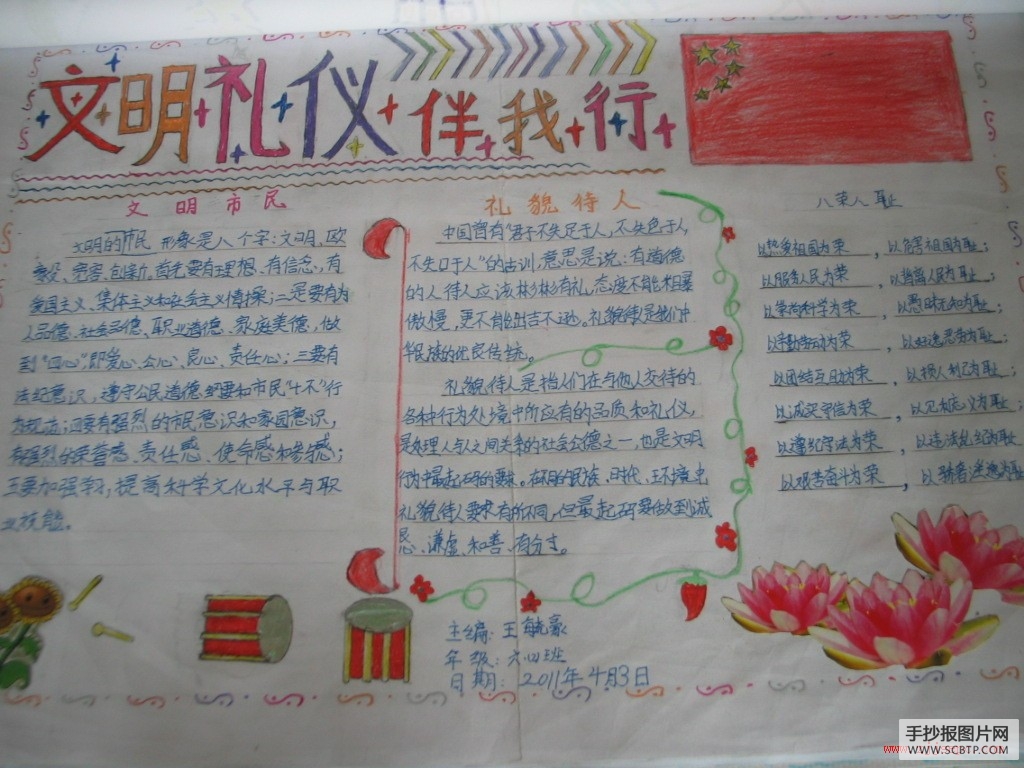 文明礼仪伴我行
文明市民
文明的市民 形象是八个字:文明、
宽容、创新,首先要有理想、有信念、有
爱国主义、集体主义和社会主义情操;二是要有为
人品德、社会公德、职业道德、家庭美德,做
到“四心”即爱心、公心、良心、责任心;三要有
法纪意识,遵守公民道德 和市民“七不”行
为规范;四要有强烈的市民意识和家园意识,
有强烈的荣誉感、责任感、使命感和
五要加强学习,提高科学文化水平与职
业技能。
礼貌待人
中国曾有“君子不失足于人,不失色于人,
不失口于人”的古训,意思是说:有道德
的人待人应该彬彬有礼,态度不能粗暴
傲慢,更不能出言不逊。礼貌待人是我们中
华民族的优良传统。
礼貌待人是指人们在与他人交待的
各种行为处境中所应有的品质和礼仪,
是处理人与人之间关系的社会公德之一,也是文明
行为中最起码的要求。在不同的民族、时代、
礼貌待人要求有所不同,但最起码要做到诚
恳、谦虚、和善、有分寸。
八荣八耻
以热爱祖国为荣,以危害祖国为耻;
以服务人民为荣,以背离人民为耻;
以崇尚科学为荣,以愚昧无知为耻;
以辛勤劳动为荣,以好逸恶劳为耻;
以团结互助为荣,以损人利己为耻;
以诚实守信为荣,以见利忘义为耻;
以遵纪守法为荣,以违法乱纪为耻;
以艰苦奋斗为荣,以骄奢淫逸为耻
主编:王毓豪
年级:六(4)班
日期:2011年4月3日
手抄报图片网
WWW.SCBTP.COM